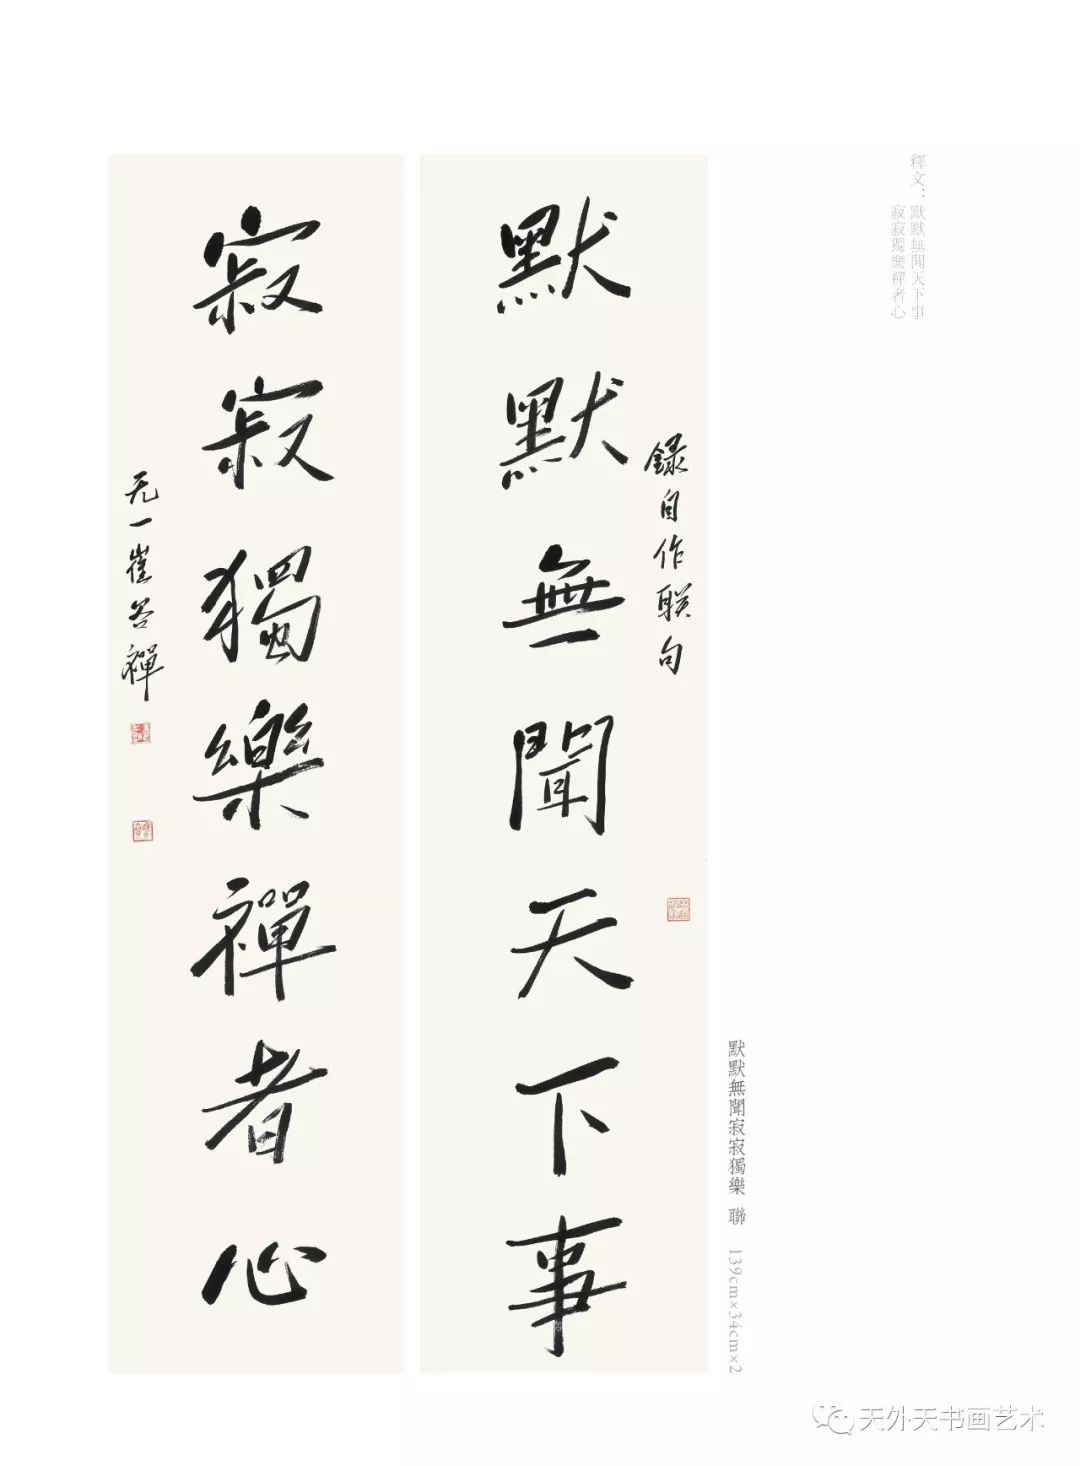 釋文：默默無聞天下事
寂寂獨樂禪者心
錄自作联句
默默無聞天下事
寂寂獨樂禪者心
无一崔谷禪
默默無聞寂寂獨樂 聯 139cm×34cm×2
天外天书画艺术